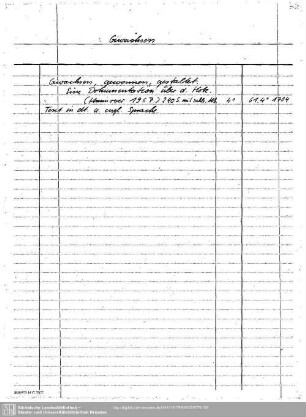 Gewachsen
Gewachsen, gewonnen, gestaltet.
Eine Dokumentation über d. Holz.
(Hannover 1957) 240 S. mit zahlr. Abb. 4° 61.4° 1784
Text in dt. u. engl. Sprache.
Sächsische Landesbibliothek -
Staats- und Universitätsbibliothek Dresden